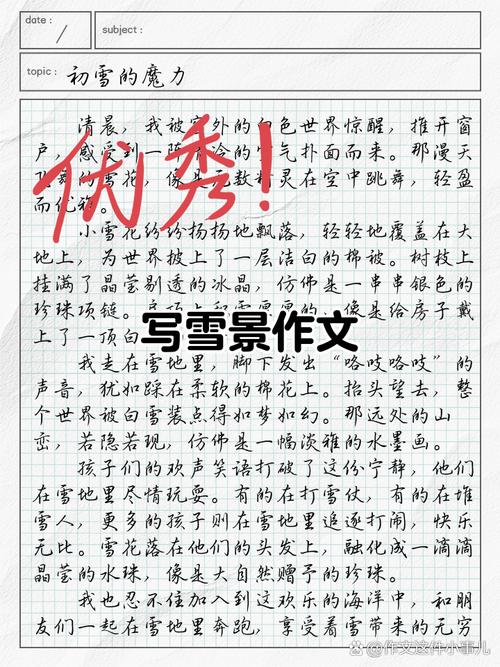 date :
subject:
topic: 初雪的魔力
清晨，我被窗外的白色世界惊醒，推开窗
户，感受到一阵清冷的空气扑面而来。那漫天
飞舞的雪花，像是无数精灵在空中跳舞，轻盈
而优雅。
优秀！
小雪花纷纷扬扬地飘落，轻轻地覆盖在大
地上，为世界披上了一层洁白的棉被。树枝上
挂满了晶莹剔透的冰晶，仿佛是一串串银色的
珍珠项链。 像是给房子戴
上了一顶白
写雪景作文
我走在雪地里，脚下发出“咯吱咯吱”的
声音，犹如踩在柔软的棉花上。抬头望去，整
个世界被白雪装点得如梦如幻。那远处的山
峦，若隐若现，仿佛是一幅淡雅的水墨画。
孩子们的欢声笑语打破了这份宁静，他们
在雪地里尽情玩耍。有的在打雪仗，有的在堆
雪人，更多的孩子则在雪地里追逐打闹，快乐
无比。雪花落在他们的头发上，融化成一滴滴
晶莹的水珠，像是大自然赠予的珍珠。
我也忍不住加入到这欢乐的海洋中，和朋
友们一起在雪地里奔跑，享受着雪带来的无穷
作文这件小事儿